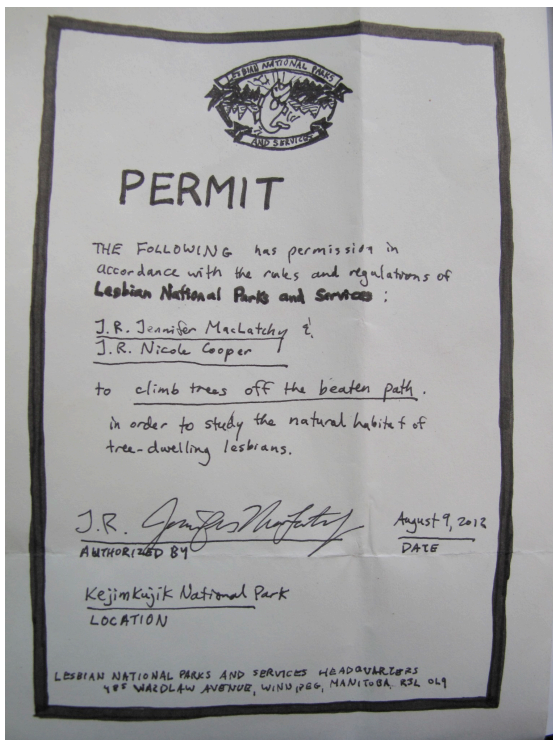 LESBIAN NATIONAL PARKS
AND SERVICES
PERMIT
THE FOLLOWING has permission in
accordance with the rules and regulations of
Lesbian National Parks and Services :
J.R. Jennifer MacLatchy &
J.R. Nicole Cooper
to climb trees off the beaten path.
in order to study the natural habitat of
tree-dwelling lesbians.
J.R. Jennifer MacLatchy
August 9, 2012
AUTHORIZED BY
DATE
Kejimkujik National Park
LOCATION
LESBIAN NATIONAL PARKS AND SERVICES HEADQUARTERS
485 WARDLAW AVENUE, WINNIPEG, MANITOBA R3L 0L9